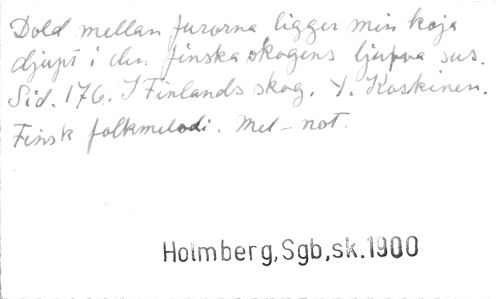 Dold mellan furorna ligger min koja
djupt i den finska skogens ljuva sus.
Sid. 176. I Finlands skog. Y. Koskinen.
Finsk folkmelodi. Mel-not.
Holmberg,Sgb,sk.1900